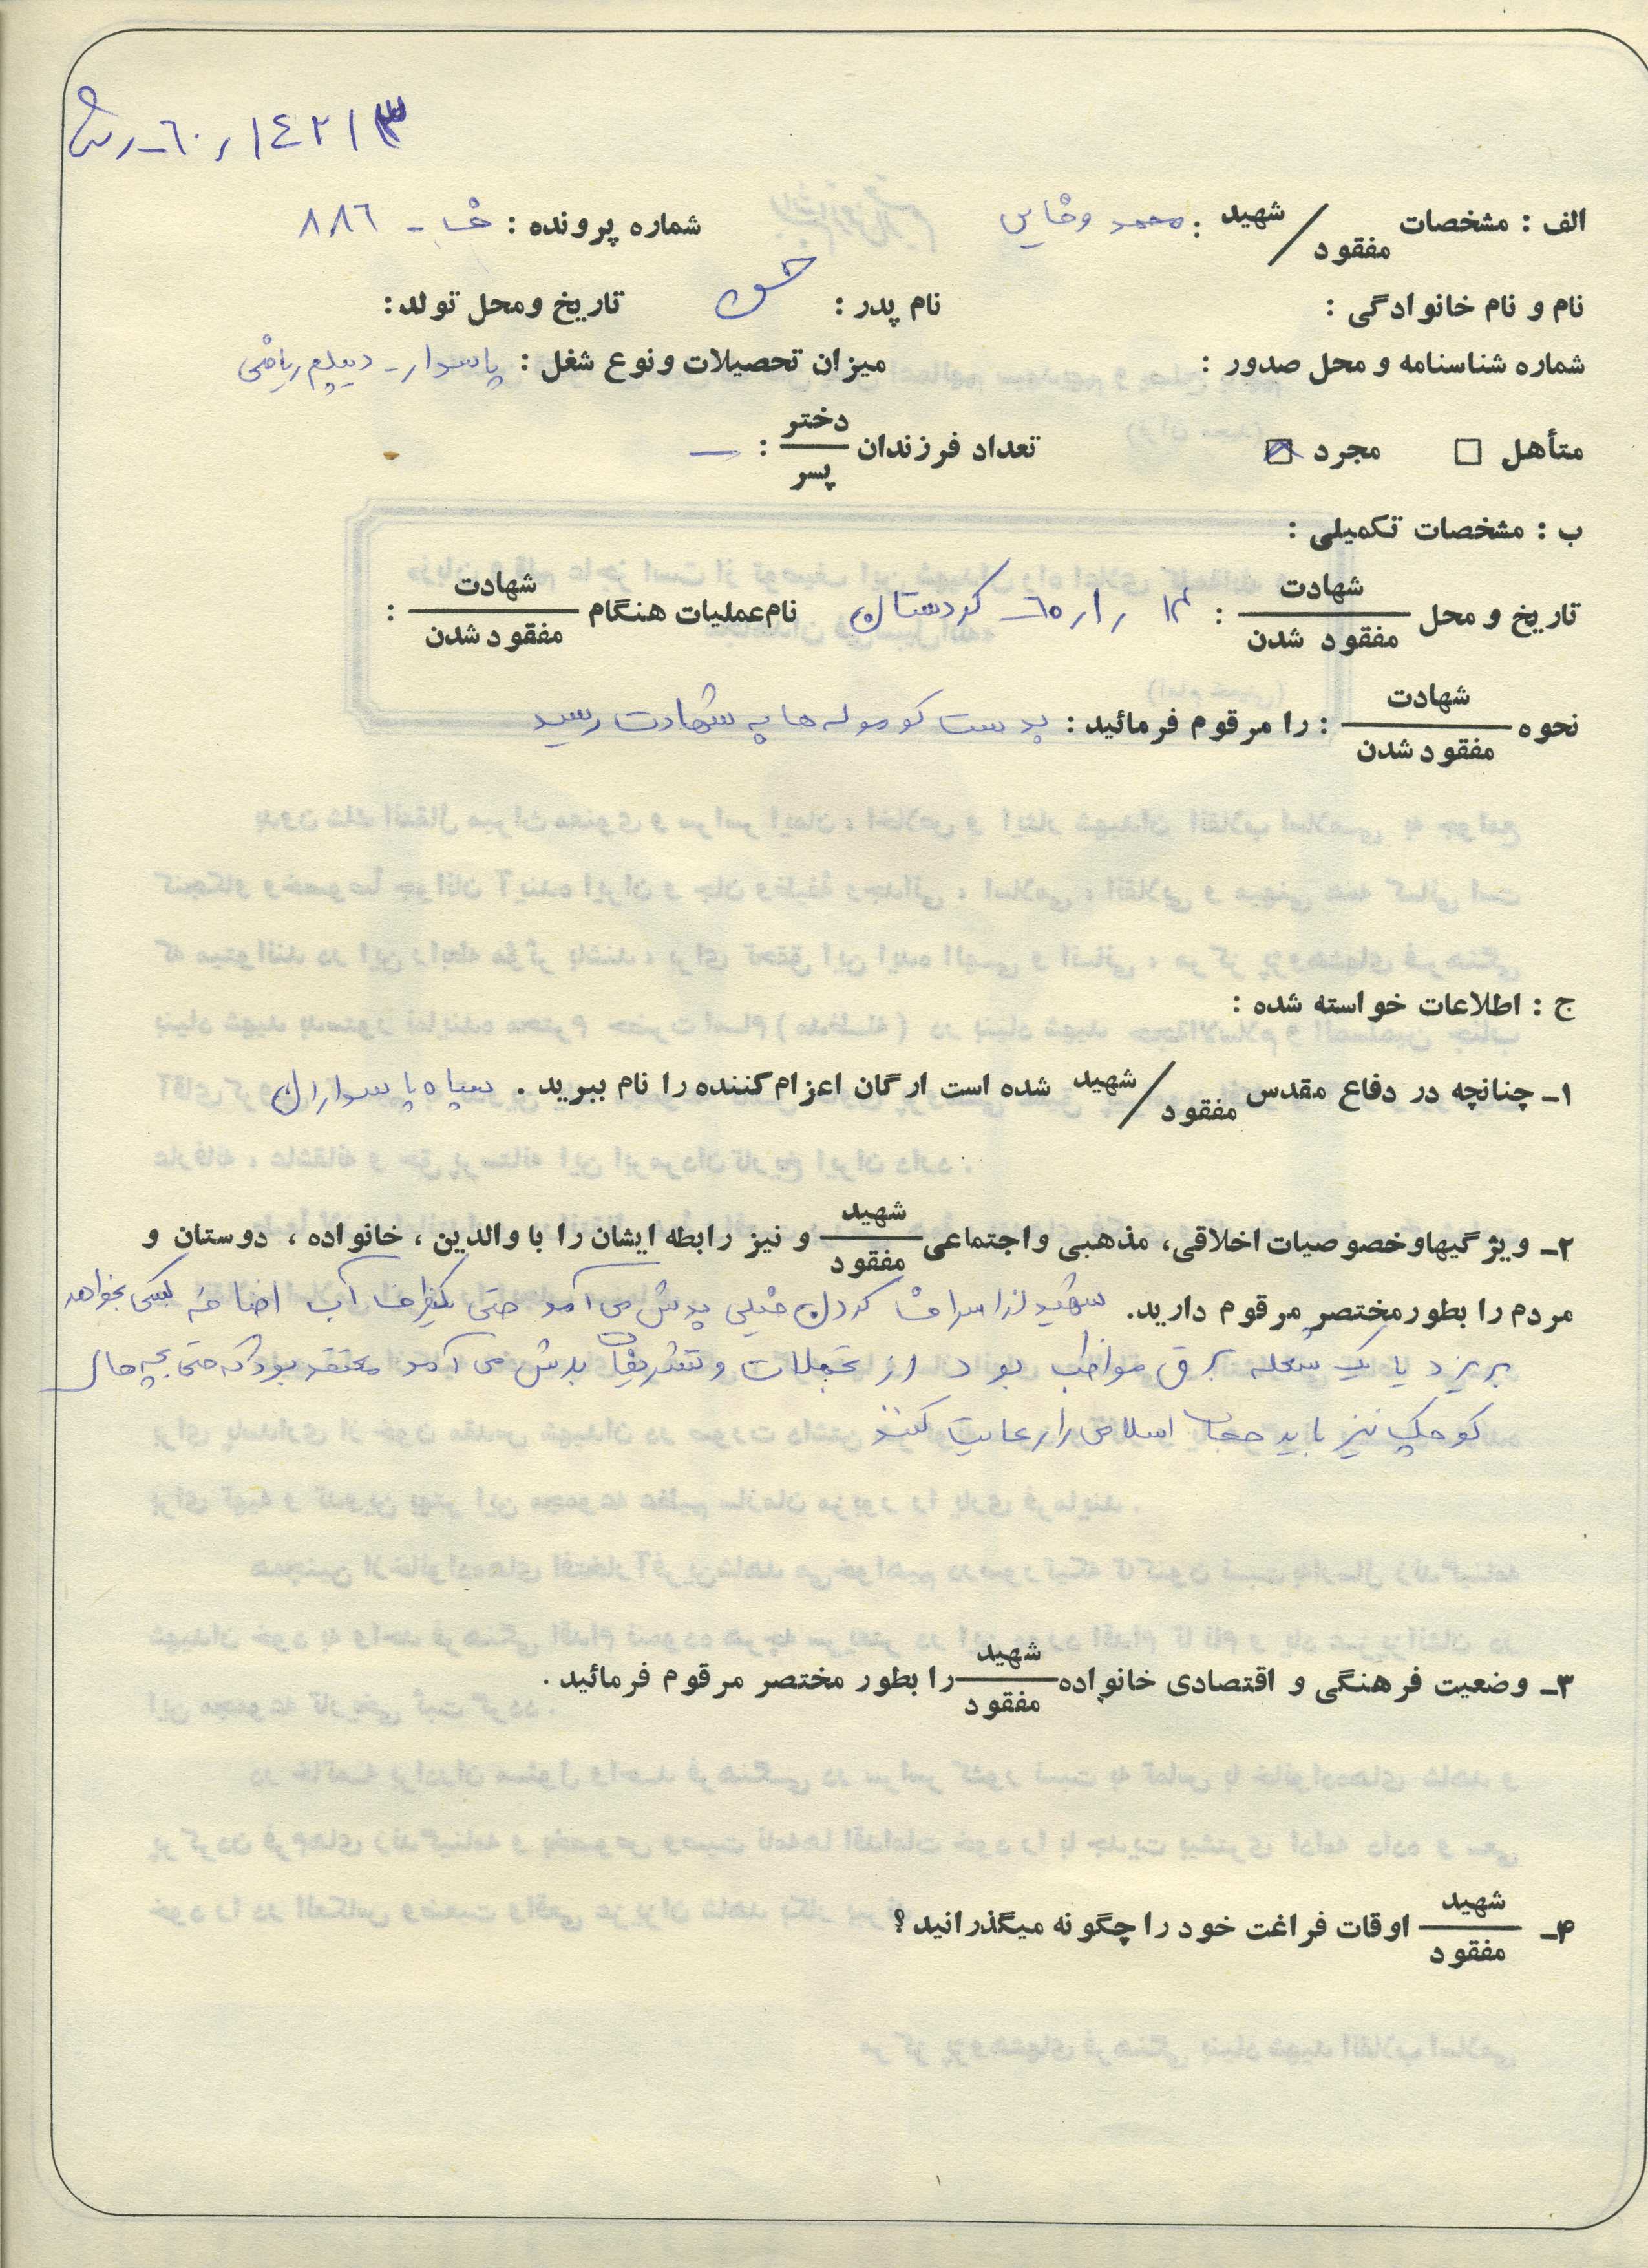 ۱۴۲۱۳ ر ۶۰ـ
الف : مشخصات شهید / مفقود : محمد وخایی شماره پرونده : خـ - ۸۸۶
نام و نام خانوادگی : نام پدر : حسن تاریخ ومحل تولد:
شماره شناسنامه و محل صدور : میزان تحصیلات ونوع شغل : پاسدار - دیپلم ریاضی
متأهل ☐ مجرد ☒ تعداد فرزندان دختر / پسر : —
ب : مشخصات تکمیلی :
تاریخ و محل شهادت / مفقود شدن : ۱۲ ر ۱ ر ۶۰ - کردستان نام عملیات هنگام شهادت / مفقود شدن :
نحوه شهادت / مفقود شدن : را مرقوم فرمائید : بدست کوموله ها به شهادت رسید
ج : اطلاعات خواسته شده :
۱ـ چنانچه در دفاع مقدس شهید / مفقود شده است ارگان اعزام کننده را نام ببرید . سپاه پاسداران
۲ـ ویژگیهاوخصوصیات اخلاقی، مذهبی واجتماعی شهید / مفقود و نیز رابطه ایشان را با والدین ، خانواده ، دوستان و
مردم را بطور مختصر مرقوم دارید. شهید از اسراف کردن خیلی بدش می آمد حتی یکظرف آب اضافه کسی بخواهد
بریزد یا یک شعله برق مواظب بود از تجملات و تشریفات بدش می آمد معتقد بود که حتی بچه های
کوچک نیز باید حجاب اسلامی را رعایت کنند
۳ـ وضعیت فرهنگی و اقتصادی خانواده شهید / مفقود را بطور مختصر مرقوم فرمائید .
۴ـ شهید / مفقود اوقات فراغت خود را چگونه میگذرانید ؟